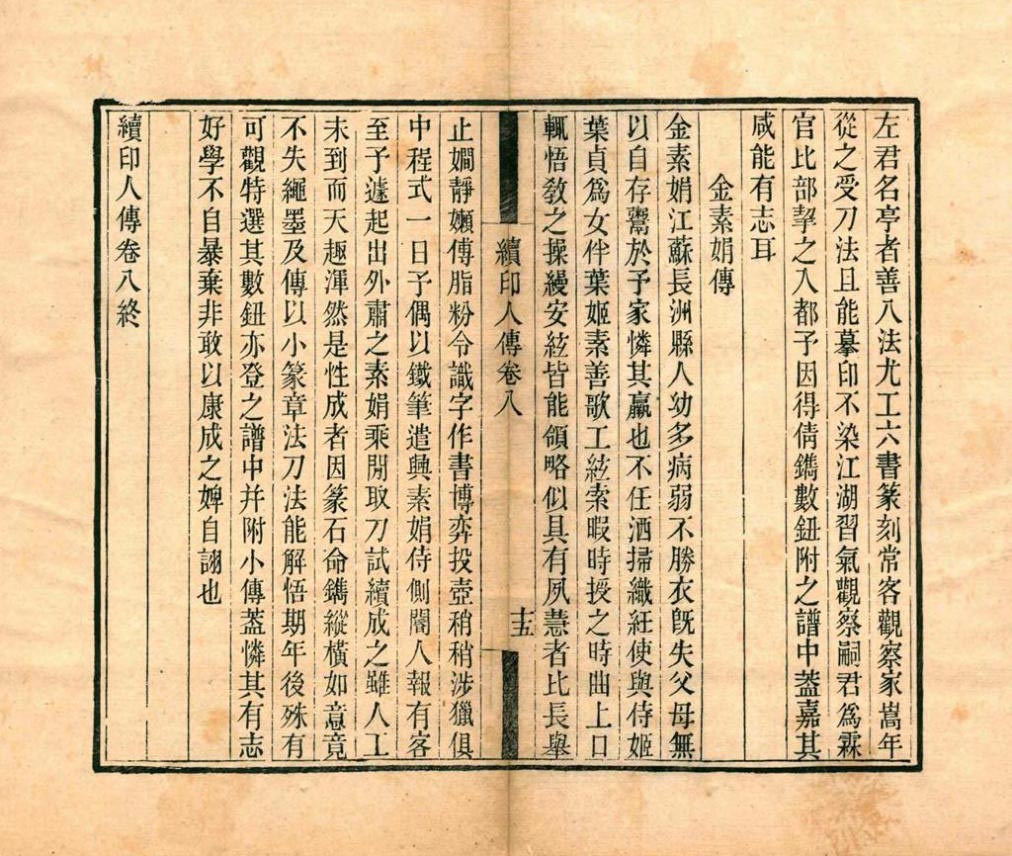 左君名亭者善八法尤工六書篆刻常客觀察家嵩年
從之受刀法且能摹印不染江湖習氣觀察嗣君爲霖
官比部挈之入都予因得倩鐫數鈕附之譜中葢嘉其
咸能有志耳
金素娟傳
金素娟江蘇長洲縣人幼多病弱不勝衣旣失父母無
以自存鬻於予家憐其羸也不任洒掃織紝使與侍姬
葉貞爲女伴葉姬素善歌工絃索暇時授之時曲上口
輒悟敎之操縵安絃皆能領略似具有夙慧者比長舉
續印人傳卷八
十五
止嫺靜嬾傅脂粉令識字作書博弈投壺稍稍涉獵俱
中程式一日予偶以鐵筆遣興素娟侍側閽人報有客
至予遽起出外肅之素娟乘閒取刀試續成之雖人工
未到而天趣渾然是性成者因篆石命鐫縱橫如意竟
不失繩墨及傳以小篆章法刀法能解悟期年後殊有
可觀特選其數鈕亦登之譜中幷附小傳葢憐其有志
好學不自暴棄非敢以康成之婢自詡也
續印人傳卷八終